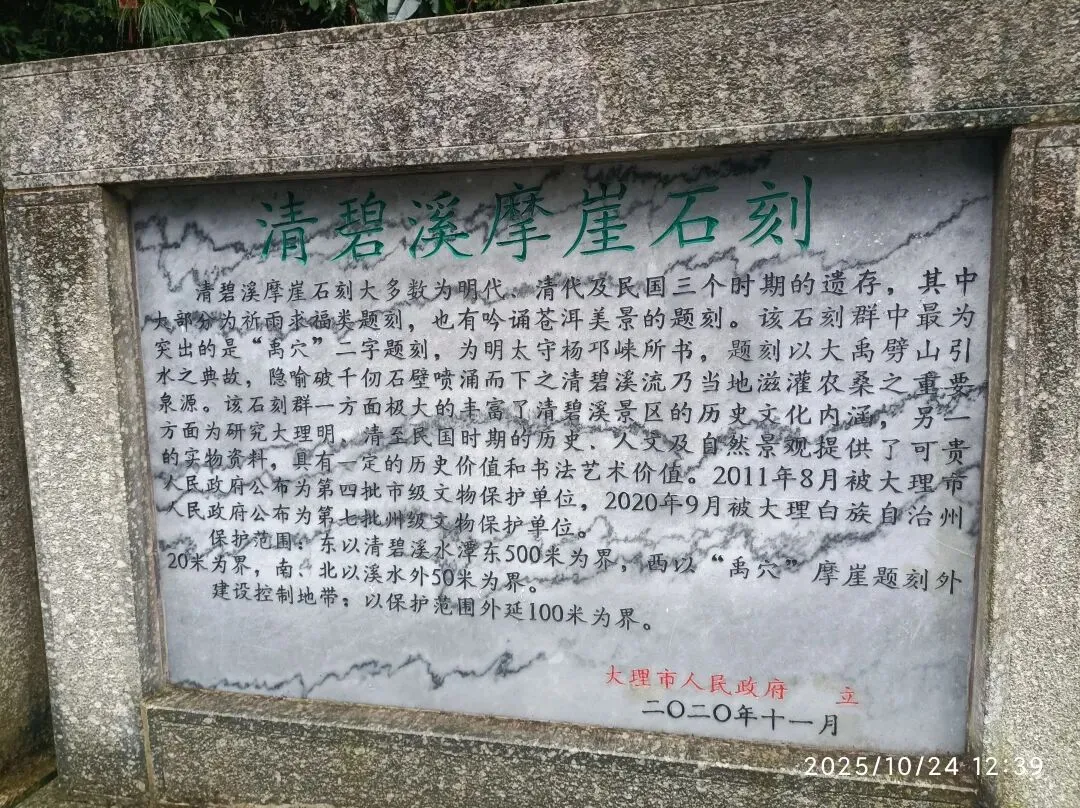 清碧溪摩崖石刻
清碧溪摩崖石刻大多数为明代、清代及民国三个时期的遗存，其中
大部分为祈雨求福类题刻，也有吟诵苍洱美景的题刻。该石刻群中最为
突出的是“禹穴”二字题刻，为明太守杨邛崃所书，题刻以大禹劈山引
水之典故，隐喻破千仞石壁喷涌而下之清碧溪流乃当地滋灌农桑之重要
泉源。该石刻群一方面极大的丰富了清碧溪景区的历史文化内涵，另一
方面为研究大理明、清至民国时期的历史、人文及自然景观提供了可贵
的实物资料，具有一定的历史价值和书法艺术价值。2011年8月被大理市
人民政府公布为第四批市级文物保护单位，2020年9月被大理白族自治州
人民政府公布为第七批州级文物保护单位。
保护范围：东以清碧溪水潭东500米为界，西以“禹穴”摩崖题刻外
20米为界，南、北以溪水外50米为界。
建设控制地带：以保护范围外延100米为界。
大理市人民政府 立
二〇二〇年十一月
2025/10/24 12:39